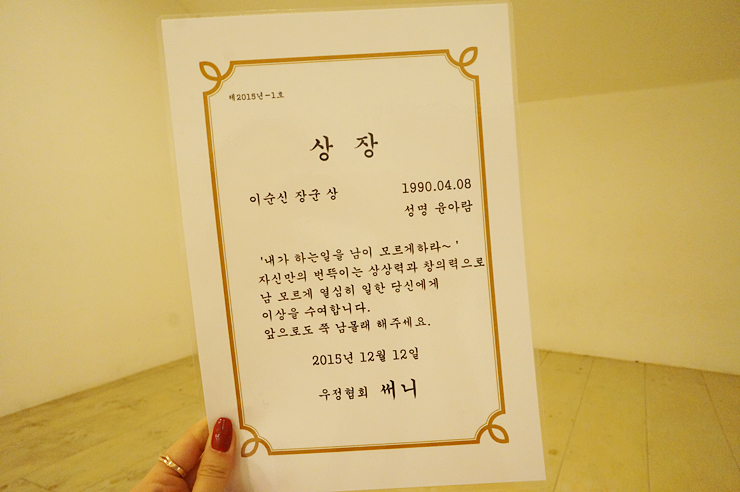 제2015년-1호
상 장
이순신 장군 상
1990.04.08
성명 윤아람
'내가 하는일을 남이 모르게하라~'
자신만의 번뜩이는 상상력과 창의력으로
남 모르게 열심히 일한 당신에게
이상을 수여합니다.
앞으로도 쭉 남몰래 해주세요.
2015년 12월 12일
우정협회 써니